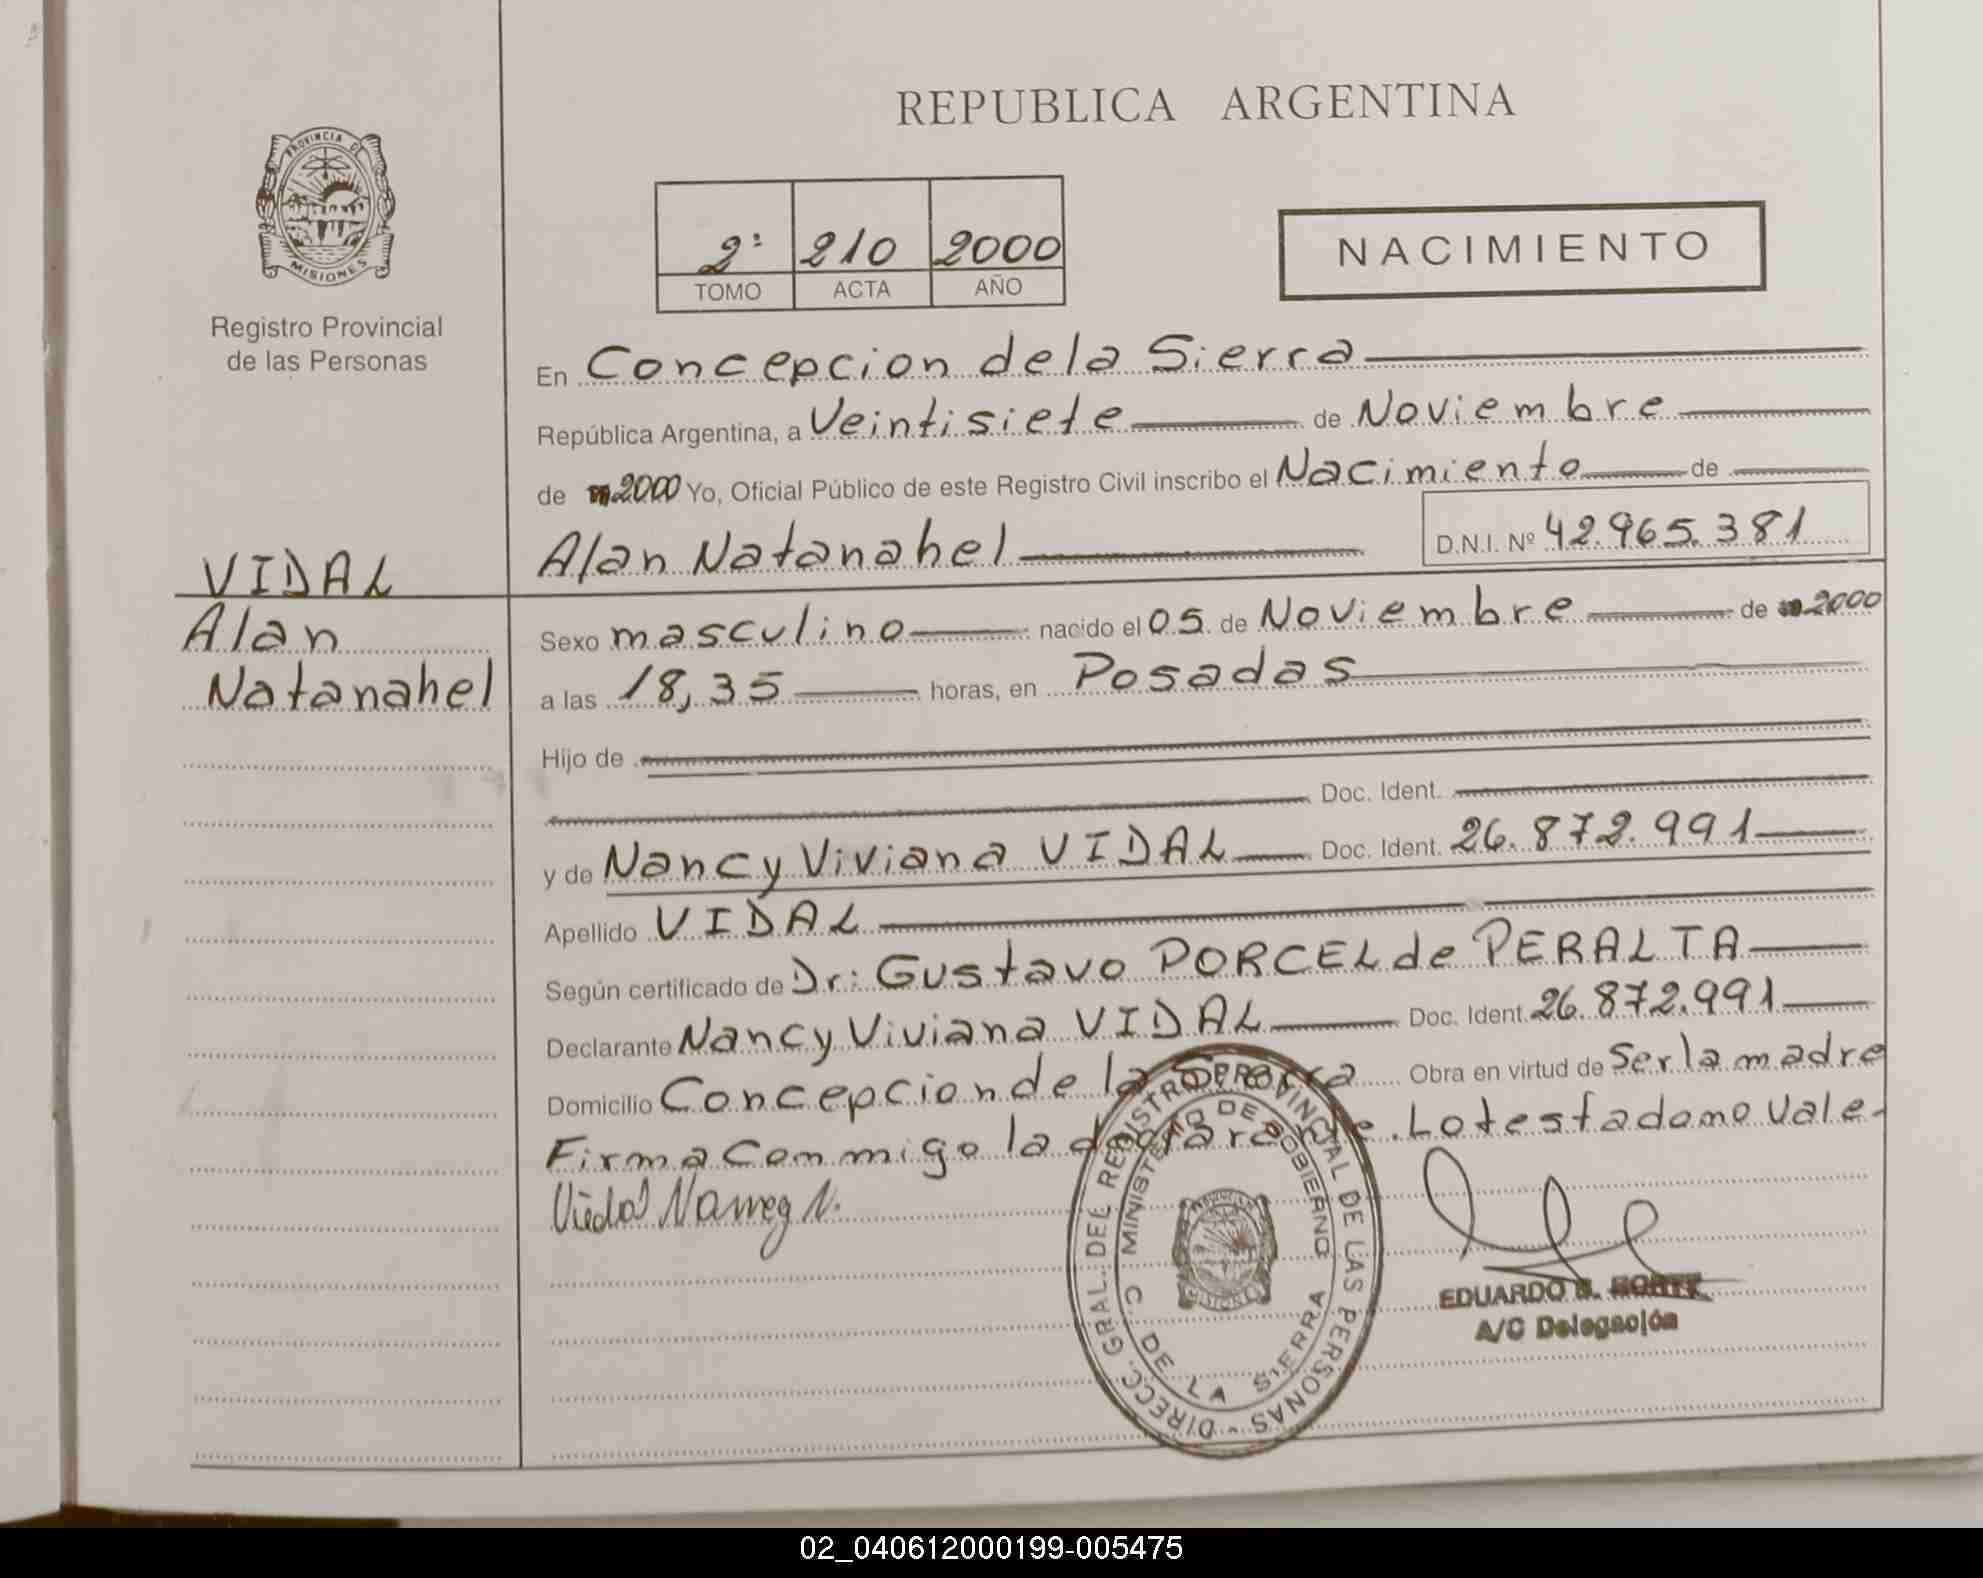 REPUBLICA ARGENTINA
PROVINCIA DE
MISIONES
Registro Provincial
de las Personas
2º 210 2000
TOMO ACTA AÑO
NACIMIENTO
En Concepcion de la Sierra
República Argentina, a Veintisiete de Noviembre
de 2000 Yo, Oficial Público de este Registro Civil inscribo el Nacimiento de
Alan Natanahel D.N.I. Nº 42.965.381
VIDAL
Alan
Natanahel
Sexo masculino nacido el 05 de Noviembre de 2000
a las 18,35 horas, en Posadas
Hijo de
Doc. Ident.
y de Nancy Viviana VIDAL Doc. Ident. 26.872.991
Apellido VIDAL
Según certificado de Dr: Gustavo PORCEL de PERALTA
Declarante Nancy Viviana VIDAL Doc. Ident. 26.872.991
Domicilio Concepcion de la Sierra Obra en virtud de Ser la madre
Firma Conmigo la declarante. Lo testado no vale-
Vidal Nancy V.
DIRECC. GRAL. DEL REGISTRO PROVINCIAL DE LAS PERSONAS -
MINISTERIO DE GOBIERNO
C. DE LA SIERRA
EDUARDO
A/C Delegación
02_040612000199-005475